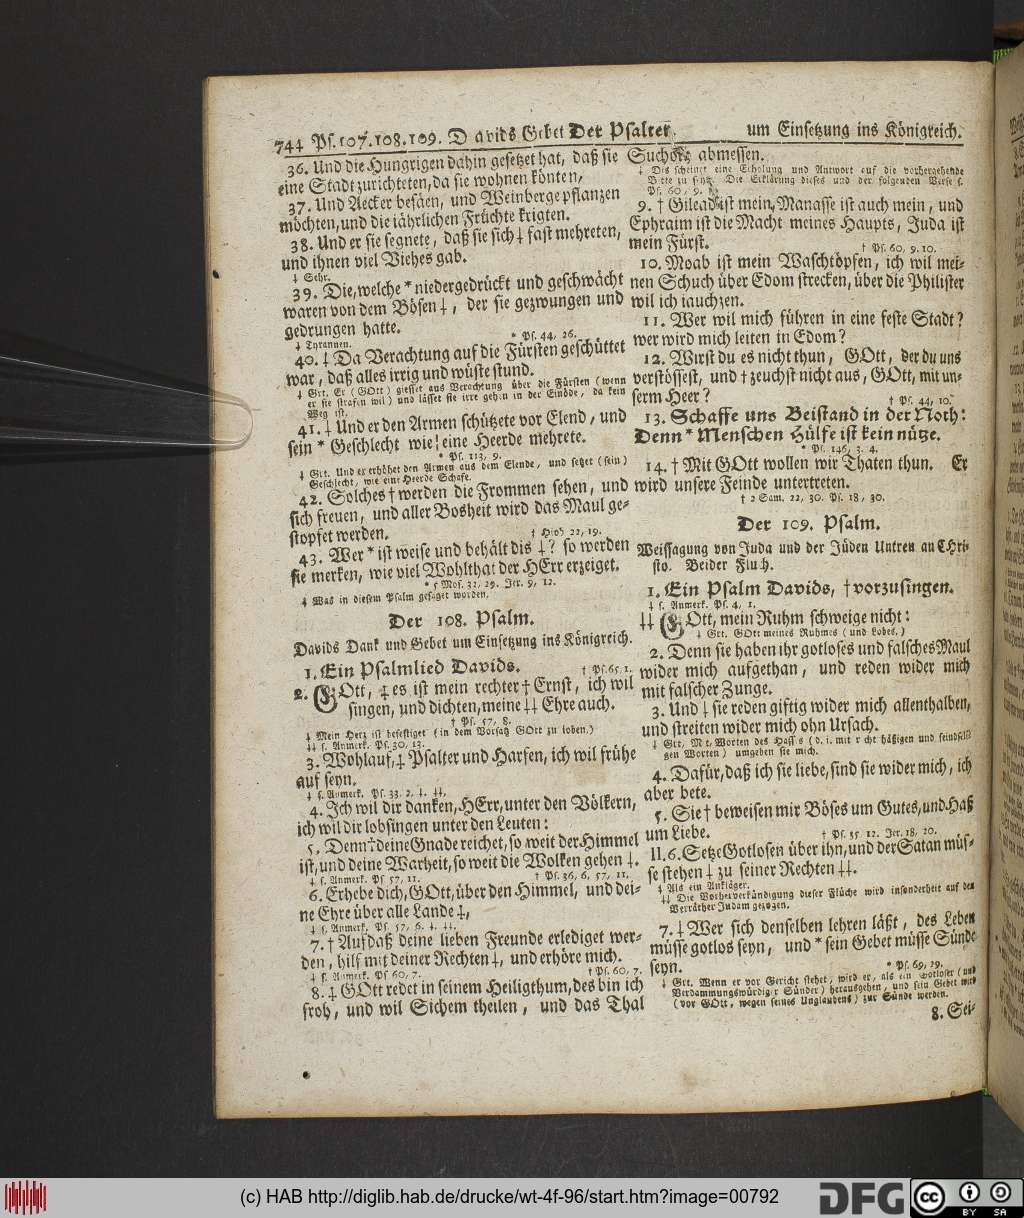 744 Ps. 107. 108. 109. Davids Gebet Der Psalter um Einsetzung ins Königreich.
36. Und die Hungrigen dahin gesetzet hat, daß sie
eine Stadt zurichteten, da sie wohnen könten,
37. Und Aecker besäen, und Weinberge pflanzen
möchten, und die iährlichen Früchte krigten.
38. Und er sie segnete, daß sie sich ‡ fast mehreten,
und ihnen viel Viehes gab.
‡ Sehr.
39. Die, welche * niedergedrückt und geschwächt
waren von dem Bösen ‡, der sie gezwungen und
gedrungen hatte.
* Ps. 44, 26.
‡ Tyrannen.
40. ‡ Da Verachtung auf die Fürsten geschüttet
war, daß alles irrig und wüste stund.
‡ Grt. Er (GOtt) giesset aus Verachtung über die Fürsten (wenn
er sie strafen wil) und lässet sie irre gehen in der Einöde, da kein
Weg ist.
41. ‡ Und er den Armen schützete vor Elend, und
sein * Geschlecht wie eine Heerde mehrete.
* Ps. 113, 9.
‡ Grt. Und er erhöhet den Armen aus dem Elende, und setzet (sein)
Geschlecht, wie eine Heerde Schafe.
42. Solches † werden die Frommen sehen, und
sich freuen, und aller Bosheit wird das Maul ge-
stopfet werden.
† Hiob 22, 19.
43. Wer * ist weise und behält dis ‡? so werden
sie merken, wie viel Wohlthat der HErr erzeiget.
* 5 Mos. 32, 29. Jer. 9, 12.
‡ Was in diesem Psalm gesaget worden.
Der 108. Psalm.
Davids Dank und Gebet um Einsetzung ins Königreich.
1. Ein Psalmlied Davids.
† Ps. 65, 1.
2. GOtt, ‡ es ist mein rechter † Ernst, ich wil
singen, und dichten, meine ‡‡ Ehre auch.
† Ps. 57, 8.
‡ Mein Herz ist befestiget (in dem Vorsatz GOtt zu loben.)
‡‡ s. Anmerk. Ps. 30, 13.
3. Wohlauf, ‡ Psalter und Harfen, ich wil frühe
auf seyn.
‡ s. Anmerk. Ps. 33, 2. ‡. ‡‡.
4. Ich wil dir danken, HErr, unter den Völkern,
ich wil dir lobsingen unter den Leuten:
5. Denn ‡ deine Gnade reichet, so weit der Himmel
ist, und deine Warheit, so weit die Wolken gehen ‡.
‡ s. Anmerk. Ps. 57, 11.
† Ps. 36, 6. 57, 11.
6. Erhebe dich, GOtt, über den Himmel, und dei-
ne Ehre über alle Lande ‡,
‡ s. Anmerk. Ps. 57, 6. ‡. ‡‡.
7. † Aufdaß deine lieben Freunde erlediget wer-
den, hilf mit deiner Rechten ‡, und erhöre mich.
‡ s. Anmerk. Ps. 60, 7.
† Ps. 60, 7.
8. ‡ GOtt redet in seinem Heiligthum, des bin ich
froh, und wil Sichem theilen, und das Thal
Suchoth abmessen.
‡ Dis scheinet eine Erholung und Antwort auf die vorhergehende
Bitte zu seyn. Die Erklärung dieses und der folgenden Verse s.
Ps. 60, 9.
9. † Gilead ist mein, Manasse ist auch mein, und
Ephraim ist die Macht meines Haupts, Juda ist
mein Fürst.
† Ps. 60, 9. 10.
10. Moab ist mein Waschtöpfen, ich wil mei-
nen Schuch über Edom strecken, über die Philister
wil ich iauchzen.
11. Wer wil mich führen in eine feste Stadt?
wer wird mich leiten in Edom?
12. Wirst du es nicht thun, GOtt, der du uns
verstössest, und † zeuchst nicht aus, GOtt, mit un-
serm Heer?
† Ps. 44, 10.
13. Schaffe uns Beistand in der Noth:
Denn * Menschen Hülfe ist kein nütze.
* Ps. 146, 3. 4.
14. † Mit GOtt wollen wir Thaten thun. Er
wird unsere Feinde untertreten.
† 2 Sam. 22, 30. Ps. 18, 30.
Der 109. Psalm.
Weissagung von Juda und der Jüden Untreu an CHri-
sto. Beider Fluch.
1. Ein Psalm Davids, † vorzusingen.
‡ s. Anmerk. Ps. 4, 1.
‡‡ GOtt, mein Ruhm schweige nicht:
‡ Grt. GOtt meines Ruhmes (und Lobes.)
2. Denn sie haben ihr gotloses und falsches Maul
wider mich aufgethan, und reden wider mich
mit falscher Zunge.
3. Und ‡ sie reden giftig wider mich allenthalben,
und streiten wider mich ohn Ursach.
‡ Grt. Mit Worten des Hasses (d. i. mit recht häßigen und feindseli-
gen Worten) umgeben sie mich.
4. Dafür, daß ich sie liebe, sind sie wider mich, ich
aber bete.
5. Sie † beweisen mir Böses um Gutes, und Haß
um Liebe.
† Ps. 35, 12. Jer. 18, 20.
II. 6. Setze Gotlosen über ihn, und der Satan müs-
se stehen ‡ zu seiner Rechten ‡‡.
‡ Als ein Ankläger.
‡‡ Die Vorherverkündigung dieser Flüche wird insonderheit auf den
Verräther Judam gezogen.
7. ‡ Wer sich denselben lehren läßt, des Leben
müsse gotlos seyn, und * sein Gebet müsse Sünde
seyn.
* Ps. 69, 29.
‡ Grt. Wenn er vor Gericht stehet, wird er, als ein Gotloser (und
Verdammungswürdiger Sünder) herausgehen, und sein Gebet wird
(vor GOtt, wegen seines Unglaubens) zur Sünde werden.
8. Sei-
(c) HAB http://diglib.hab.de/drucke/wt-4f-96/start.htm?image=00792
DFG
cc
BY SA